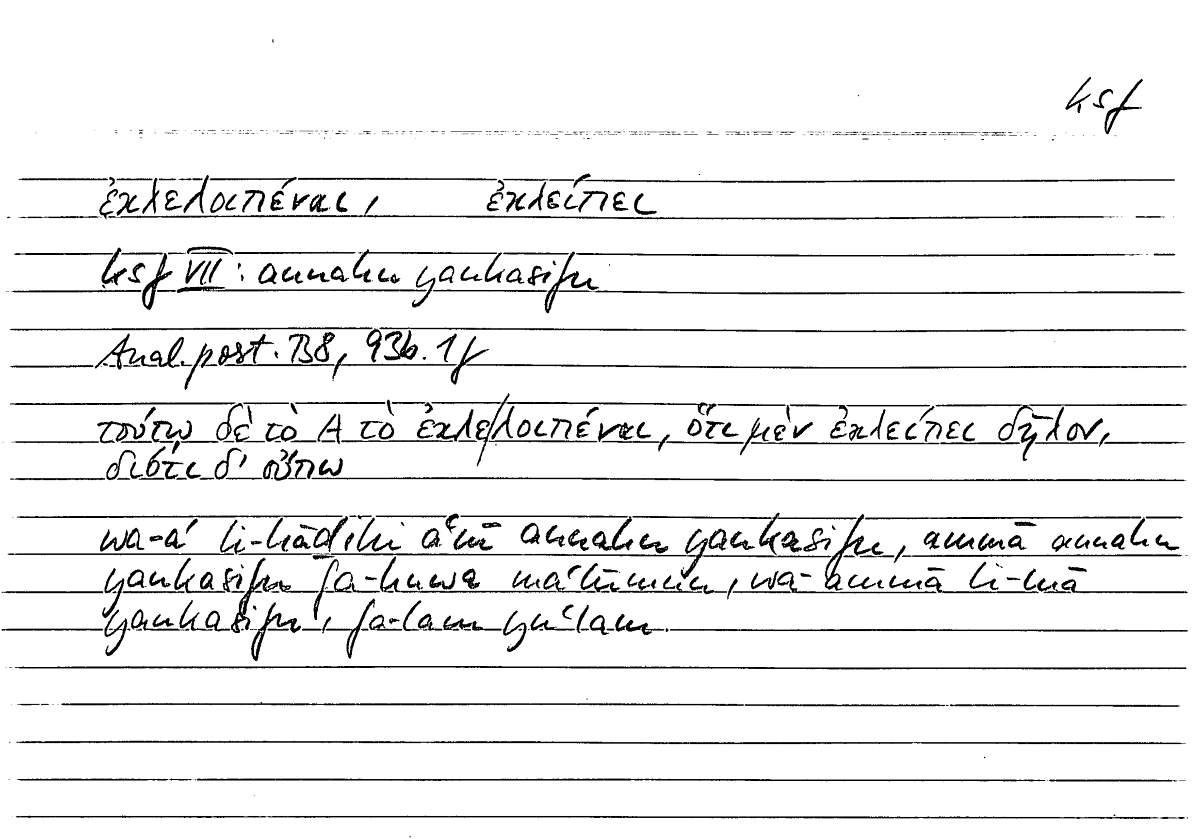 ksf
ἐκλελοιπέναι, ἐκλείπει
ksf VII: annahu yankasifu
Anal. post. B8, 93b.1f
τούτῳ δὲ τὸ A τὸ ἐκλε/λοιπέναι, ὅτι μὲν ἐκλείπει δῆλον,
διότι δ' οὔπω
wa-a' li-hāḏihi a'nī annahu yankasifu, ammā annahu
yankasifu fa-huwa ma'lūmun, wa-ammā li-mā
yankasifu, fa-lam yu'lam.